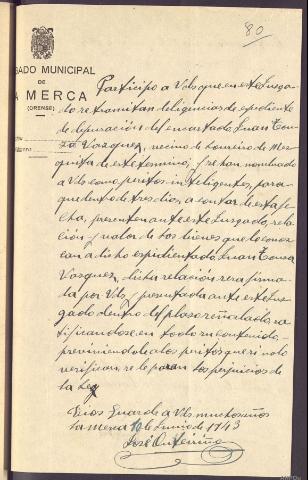 80
GADO MUNICIPAL
DE
A MERCA
(ORENSE)
Participo a Vds que en este Juzga-
do se tramitan diligencias de expediente
de depuración del encartado Juan Sou-
za Vazquez, vecino de Loureiro de Mez-
quita de este termino, y se han nombrado
a Vds como peritos inteligentes, para
que dentro de tres dias, a contar de esta fe-
cha, presenten ante este Juzgado, rela-
ción y valor de los bienes que le conoz-
can a dicho expedientado Juan Souza
Vazquez, dicha relación sera firma-
da por Vds, y presentada ante este Juz-
gado dentro del plazo señalado, ra-
tificandose en todo su contenido,
previniendole a los peritos que si no lo
verifican, se le paran los perjuicios de
la Ley
Dios Guarde a Vds muchos años
La Merca 10 de Junio de 1943
José